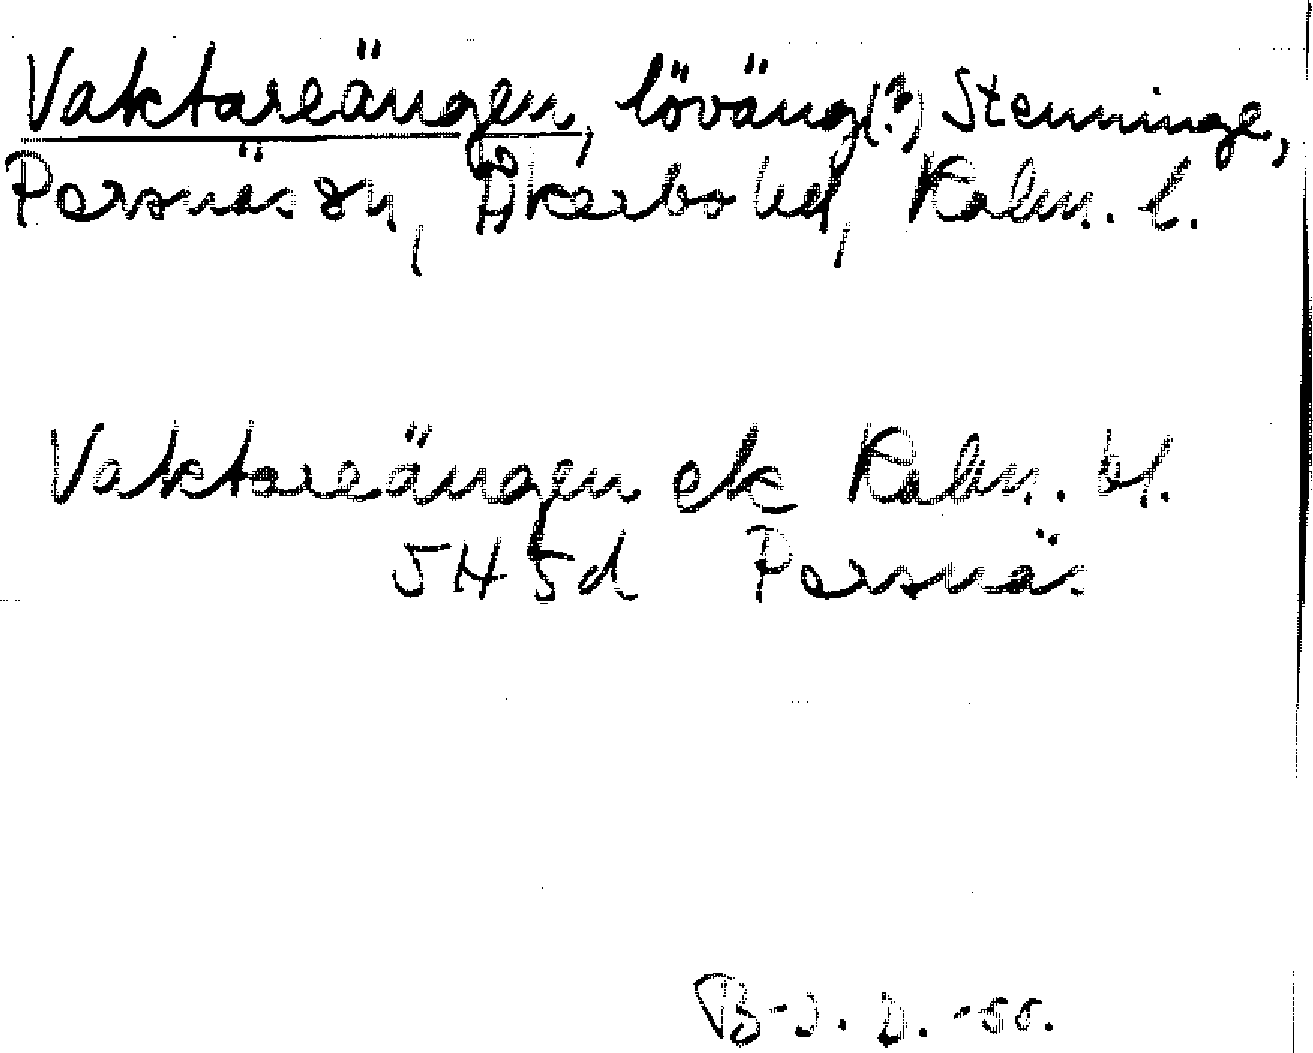 Vaktareängen, löväng(?) Stenninge,
Persnäs sn, Åkerbo hd, Kalm. l.
Vaktareängen ek Kalm. bl.
5H 5d Persnäs
B-J. D. -55.